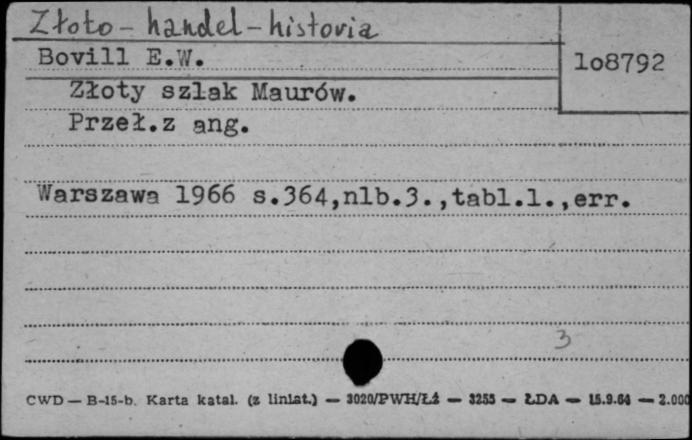 Złoto - handel - historia
Bovill E.W.
lo8792
Złoty szlak Maurów.
Przeł.z ang.
Warszawa 1966 s.364,nlb.3.,tabl.l.,err.
3
CWD — B-15-b. Karta katal. (z liniat.) — 3020/PWH/Łź — 3255 — ŁDA — 15.9.64 — 2.000